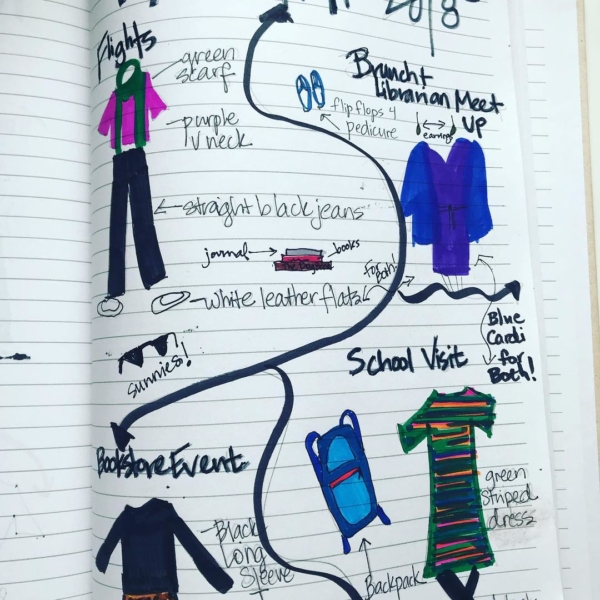 2018
Flights
green
scarf
purple
V neck
straight black jeans
journal
books
white leather flats
for
Both!
sunnies!
Brunch +
Librarian Meet
UP
flip flops 4
pedicure
earrings
Blue
Cardi
for
Both!
School Visit
green
striped
dress
Backpack
Bookstore Event
Black
Long
Sleeve